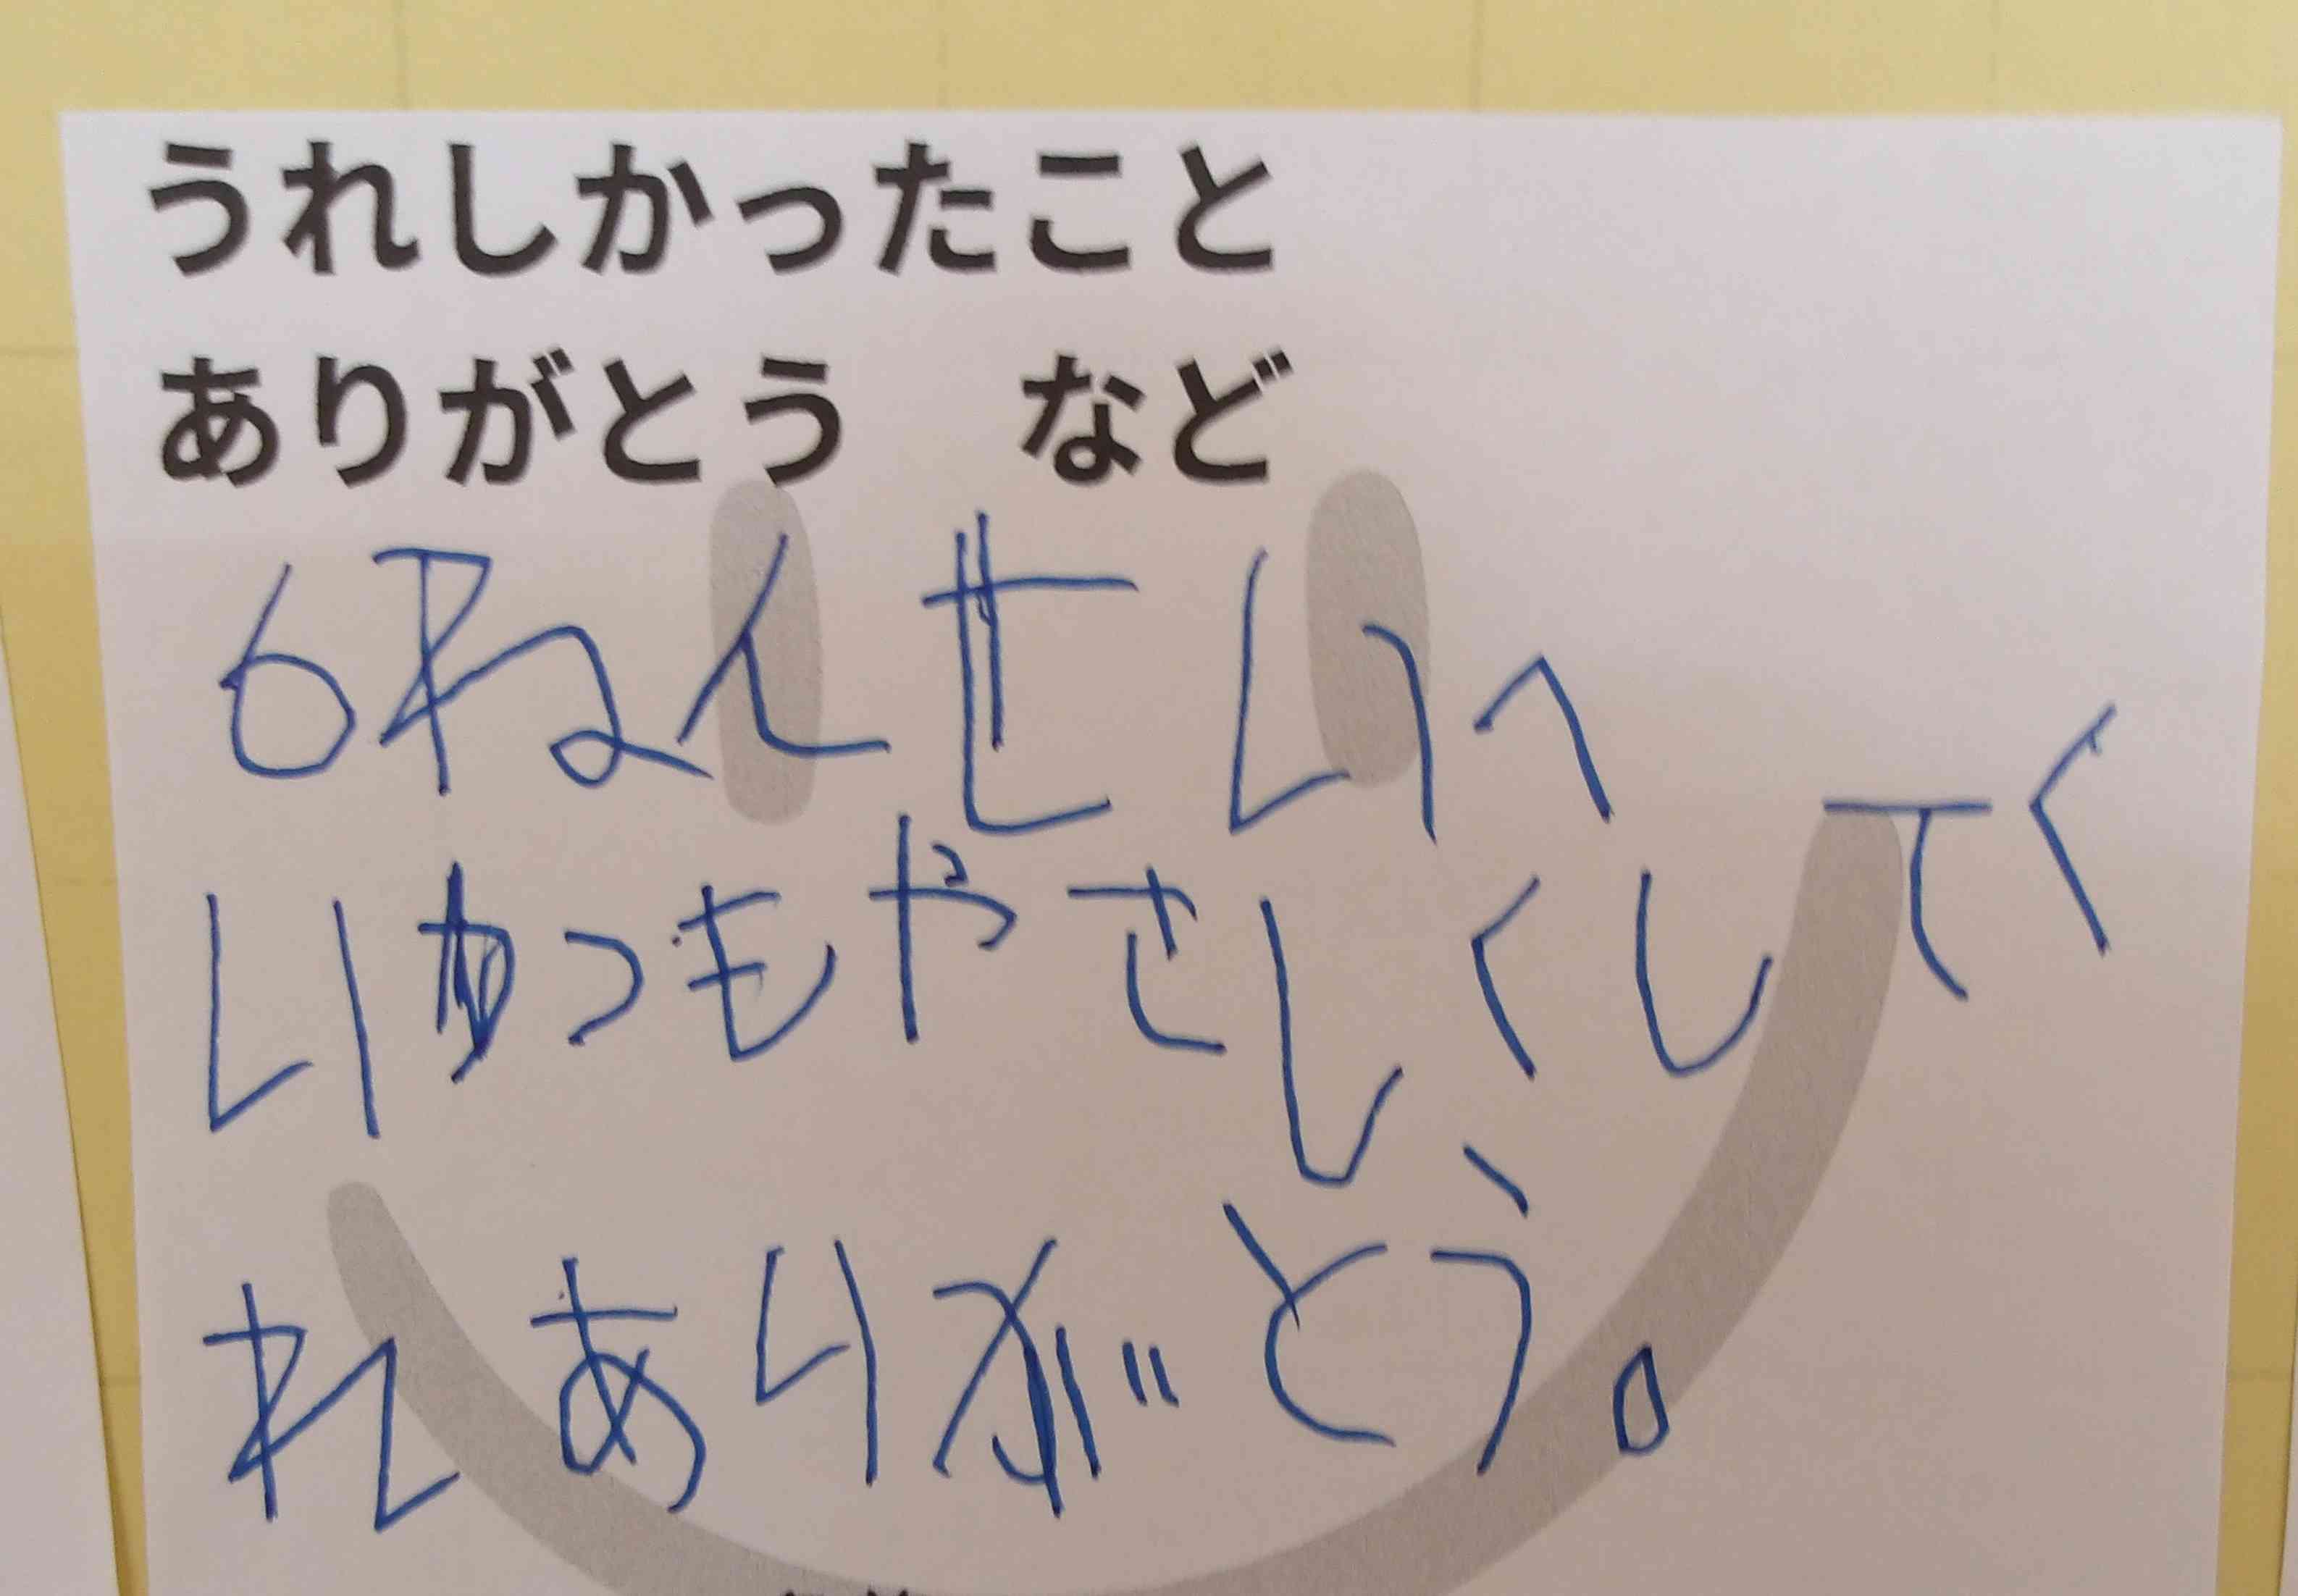 うれしかったこと
ありがとう　など
6ねんせいへ
いつもやさしくしてく
れありがとう。